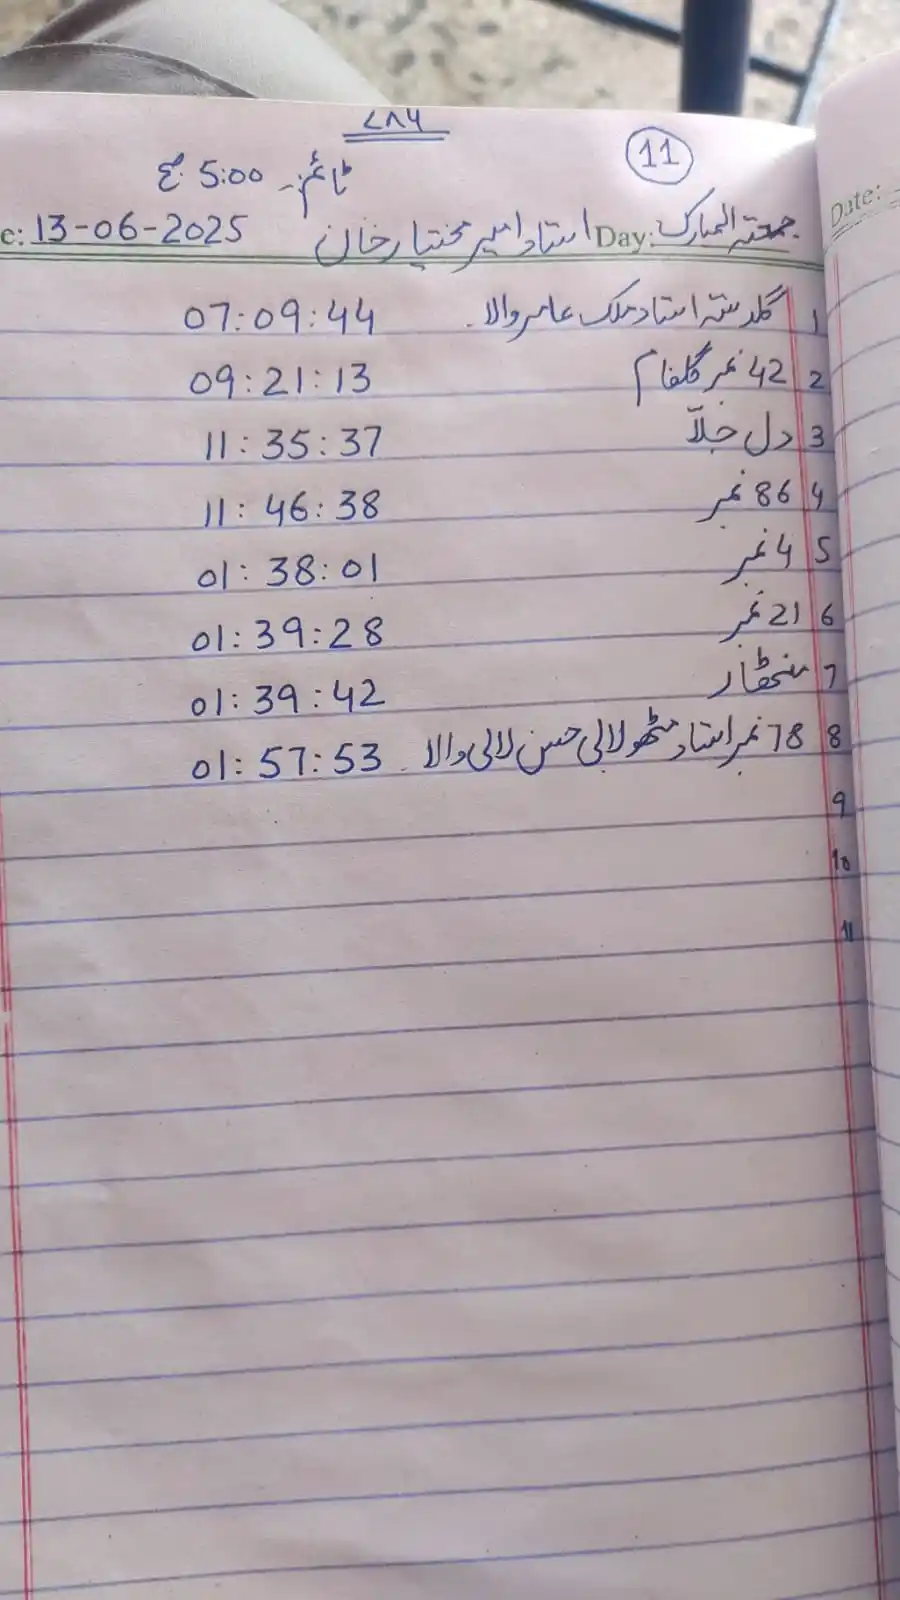 ۷۸۶
11
ٹائم۔ 5:00 صبح
Day: جمعتہ المبارک استاد امیر مختیار خان e: 13-06-2025
Date:
1 گلدستہ استاد ملک عامر والا۔ 07:09:44
2 42 نمبر گلفام 09:21:13
3 دل جلا 11:35:37
4 86 نمبر 11:46:38
5 4 نمبر 01:38:01
6 21 نمبر 01:39:28
7 منٹھار 01:39:42
8 78 نمبر استاد مٹھو لالی حسن لالی والا۔ 01:57:53
9
10
11